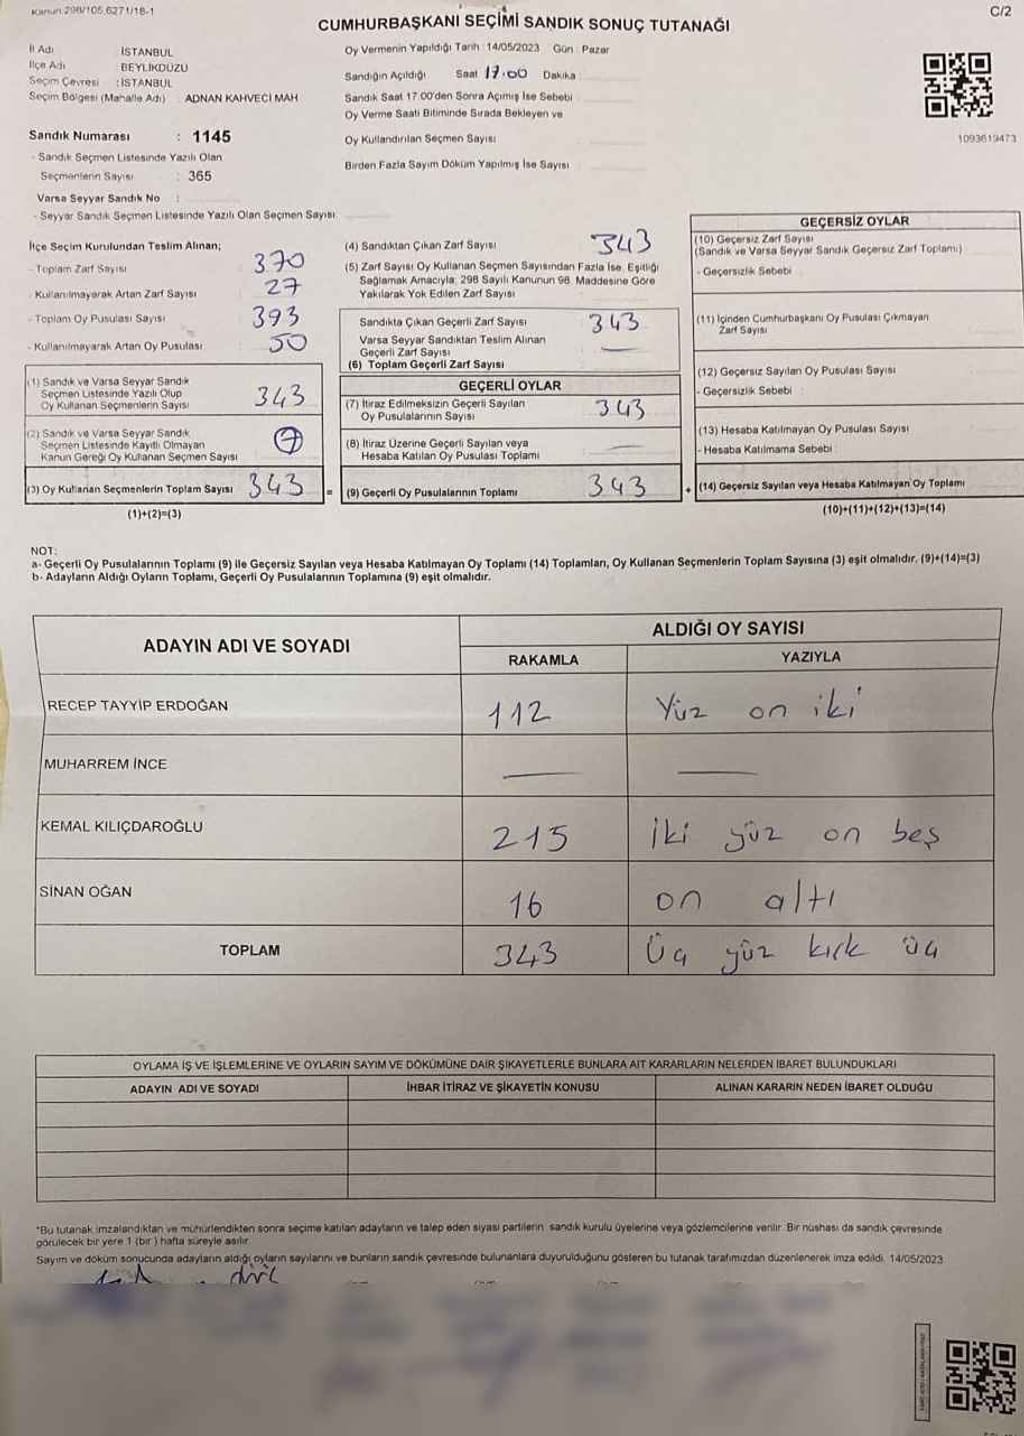 Kanun 298/105,6271/18-1
C/2
CUMHURBAŞKANI SEÇİMİ SANDIK SONUÇ TUTANAĞI
İl Adı İSTANBUL
İlçe Adı BEYLİKDÜZÜ
Seçim Çevresi : İSTANBUL
Seçim Bölgesi (Mahalle Adı) ADNAN KAHVECİ MAH
Oy Vermenin Yapıldığı Tarih 14/05/2023 Gün Pazar
Sandığın Açıldığı Saat 17.00 Dakika
Sandık Saat 17.00'den Sonra Açımış İse Sebebi
Oy Verme Saati Bitiminde Sırada Bekleyen ve
Oy Kullandırılan Seçmen Sayısı
Birden Fazla Sayım Döküm Yapılmış İse Sayısı
1093619473
Sandık Numarası : 1145
- Sandık Seçmen Listesinde Yazılı Olan
Seçmenlerin Sayısı : 365
Varsa Seyyar Sandık No :
- Seyyar Sandık Seçmen Listesinde Yazılı Olan Seçmen Sayısı
İlçe Seçim Kurulundan Teslim Alınan;
- Toplam Zarf Sayısı 370
- Kullanılmayarak Artan Zarf Sayısı 27
- Toplam Oy Pusulası Sayısı 393
- Kullanılmayarak Artan Oy Pusulası 50
(1) Sandık ve Varsa Seyyar Sandık
Seçmen Listesinde Yazılı Olup
Oy Kullanan Seçmenlerin Sayısı 343
(2) Sandık ve Varsa Seyyar Sandık
Seçmen Listesinde Kayıtlı Olmayan
Kanun Gereği Oy Kullanan Seçmen Sayısı
(3) Oy Kullanan Seçmenlerin Toplam Sayısı 343 =
(1)+(2)=(3)
(4) Sandıktan Çıkan Zarf Sayısı 343
(5) Zarf Sayısı Oy Kullanan Seçmen Sayısından Fazla İse, Eşitliği
Sağlamak Amacıyla, 298 Sayılı Kanunun 98. Maddesine Göre
Yakılarak Yok Edilen Zarf Sayısı
Sandıkta Çıkan Geçerli Zarf Sayısı 343
Varsa Seyyar Sandıktan Teslim Alınan
Geçerli Zarf Sayısı —
(6) Toplam Geçerli Zarf Sayısı
GEÇERLİ OYLAR
(7) İtiraz Edilmeksizin Geçerli Sayılan
Oy Pusulalarının Sayısı 343
(8) İtiraz Üzerine Geçerli Sayılan veya
Hesaba Katılan Oy Pusulası Toplamı —
(9) Geçerli Oy Pusulalarının Toplamı 343 +
GEÇERSİZ OYLAR
(10) Geçersiz Zarf Sayısı
(Sandık ve Varsa Seyyar Sandık Geçersiz Zarf Toplamı)
- Geçersizlik Sebebi
(11) İçinden Cumhurbaşkanı Oy Pusulası Çıkmayan
Zarf Sayısı
(12) Geçersiz Sayılan Oy Pusulası Sayısı
- Geçersizlik Sebebi :
(13) Hesaba Katılmayan Oy Pusulası Sayısı
- Hesaba Katılmama Sebebi
(14) Geçersiz Sayılan veya Hesaba Katılmayan Oy Toplamı
(10)+(11)+(12)+(13)=(14)
NOT:
a- Geçerli Oy Pusulalarının Toplamı (9) ile Geçersiz Sayılan veya Hesaba Katılmayan Oy Toplamı (14) Toplamları, Oy Kullanan Seçmenlerin Toplam Sayısına (3) eşit olmalıdır. (9)+(14)=(3)
b- Adayların Aldığı Oyların Toplamı, Geçerli Oy Pusulalarının Toplamına (9) eşit olmalıdır.
ADAYIN ADI VE SOYADI ALDIĞI OY SAYISI
RAKAMLA YAZIYLA
RECEP TAYYİP ERDOĞAN 112 Yüz on iki
MUHARREM İNCE — —
KEMAL KILIÇDAROĞLU 215 İki yüz on beş
SİNAN OĞAN 16 on altı
TOPLAM 343 Üç yüz kırk üç
OYLAMA İŞ VE İŞLEMLERİNE VE OYLARIN SAYIM VE DÖKÜMÜNE DAİR ŞİKAYETLERLE BUNLARA AİT KARARLARIN NELERDEN İBARET BULUNDUKLARI
ADAYIN ADI VE SOYADI İHBAR İTİRAZ VE ŞİKAYETİN KONUSU ALINAN KARARIN NEDEN İBARET OLDUĞU
*Bu tutanak imzalandıktan ve mühürlendikten sonra seçime katılan adayların ve talep eden siyasi partilerin sandık kurulu üyelerine veya gözlemcilerine verilir. Bir nüshası da sandık çevresinde
görülecek bir yere 1 (bir) hafta süreyle asılır.
Sayım ve döküm sonucunda adayların aldığı oyların sayılarını ve bunların sandık çevresinde bulunanlara duyurulduğunu gösteren bu tutanak tarafımızdan düzenlenerek imza edildi. 14/05/2023